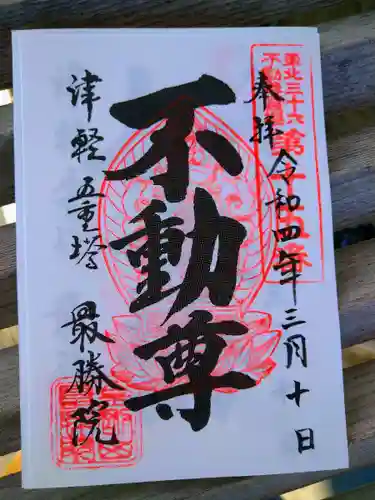 奉拝
令和四年三月十日
不動尊
津軽五重塔
最勝院
東北三十六
不動尊